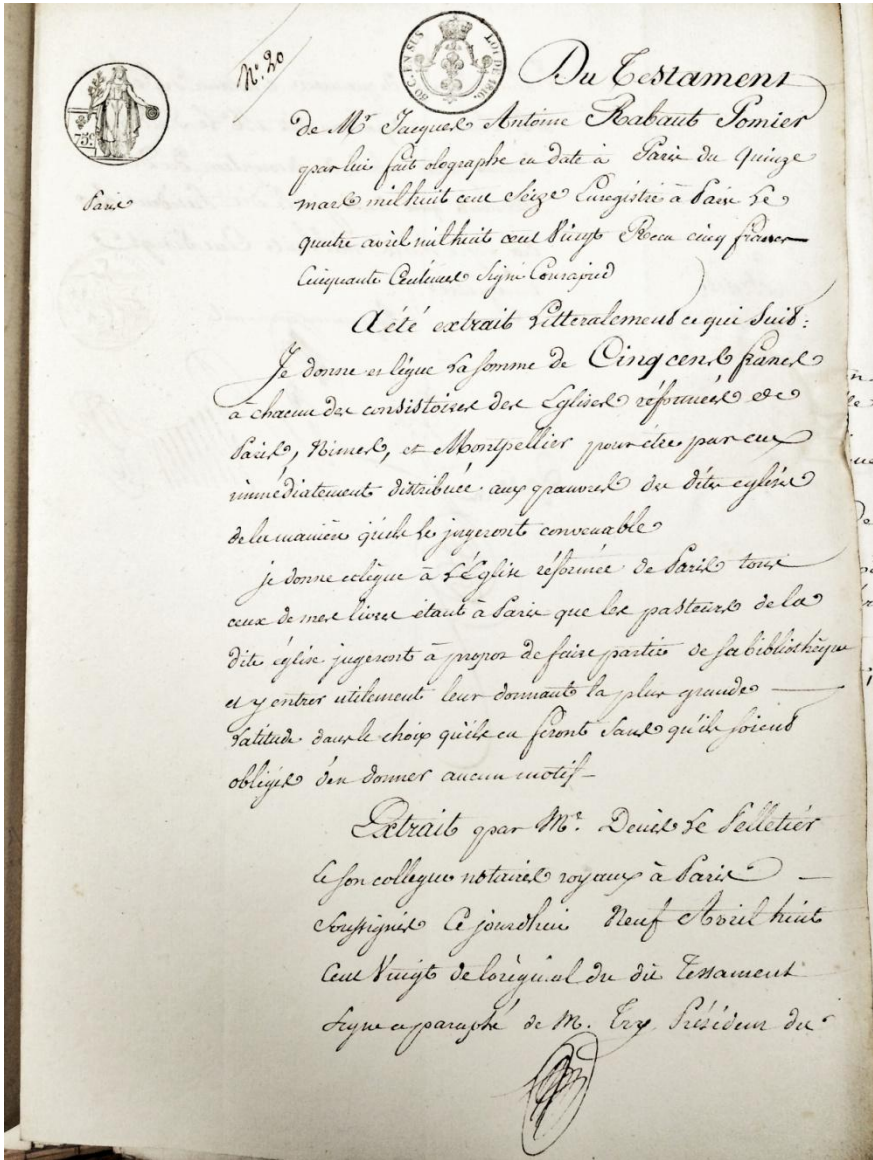 N.° 20
80 C. EN SUS LOI DE 1816
75 c.
Du Testament
de Mr Jacques Antoine Rabaut Pomier
par lui fait olographe en date à Paris du quinze
Paris
mars mil huit cent Seize Enregistré à Paris Le
quatre avril mil huit cent Vingt Recu cinq francs
Cinquante Centimes Signé
A été extrait Litteralement ce qui Suit :
Je donne et lègue La somme de Cinq cens francs
à chacun des consistoires des Eglises réformées de
Paris, Nimes, et Montpellier pour être par eux
immédiatement distribuée aux pauvres des dites eglises
de la manière qu'ils le jugeront convenable
je donne et lègue à L'Eglise réformée de Paris tous
ceux de mes livres étant à Paris que les pasteurs de la
dite église jugeront à propos de faire partie de sa bibliothèque
et y entrer utilement leur donnant la plus grande
Latitude dans le choix qu'ils en feront Sans qu'ils soient
obligés d'en donner aucun motif
Extrait par Mr. Denis Le Pelletier
et son collegue notaires royaux à Paris
Soussignés Ce jourdhui Neuf Avril huit
Cent Vingt de l'original du dit Testament
Signe et paraphé de M. Try Président du